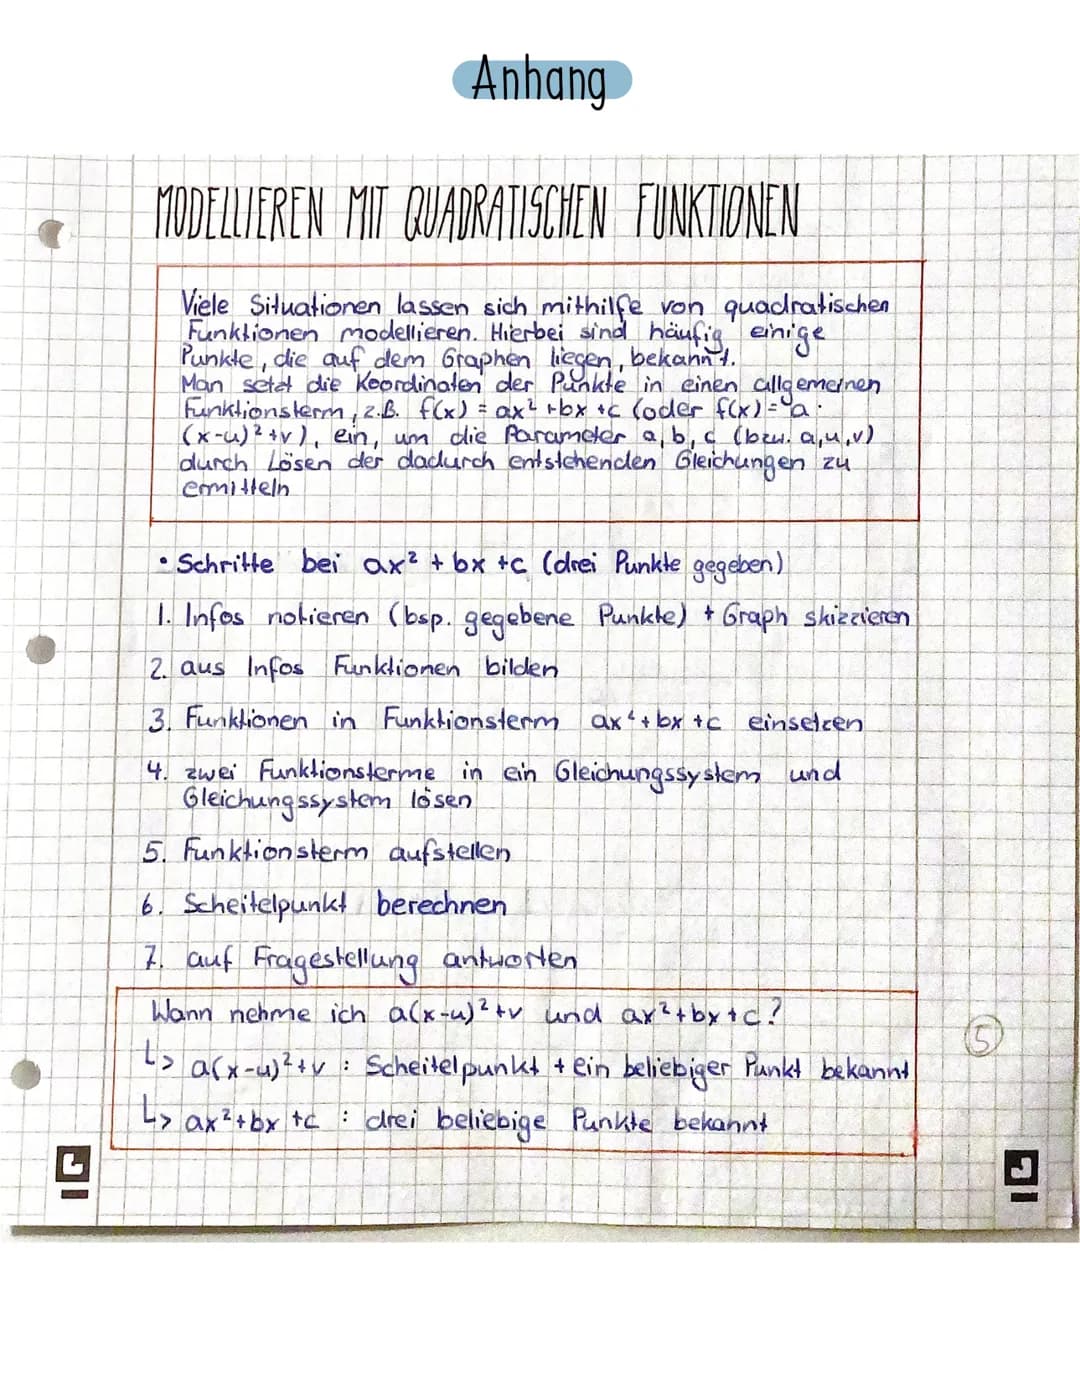 Anhang
MODELLIEREN MIT QUADRATISCHEN FUNKTIONEN
Viele Situationen lassen sich mithilfe von quadratischen
Funktionen modellieren. Hierbei sind häufig einige
Punkte, die auf dem Graphen liegen, bekannt.
Man setzt die Koordinaten der Punkte in einen allgemeinen
Funktionsterm, z.B. f(x) = ax² + bx + c (oder f(x) = a ·
(x-u)² + v), ein, um die Parameter a, b, c (bzw. a,u,v)
durch Lösen der dadurch entstehenden Gleichungen zu
ermitteln
• Schritte bei ax² + bx + c (drei Punkte gegeben)
1. Infos notieren (bsp. gegebene Punkte) + Graph skizzieren
2. aus Infos Funktionen bilden
3. Funktionen in Funktionsterm ax² + bx + c einsetzen
4. zwei Funktionsterme in ein Gleichungssystem und
Gleichungssystem lösen
5. Funktionsterm aufstellen
6. Scheitelpunkt berechnen
7. auf Fragestellung antworten
Wann nehme ich a(x-u)² + v und ax² + bx + c?
↳ a(x-u)² + v : Scheitelpunkt + ein beliebiger Punkt bekannt
↳ ax² + bx + c : drei beliebige Punkte bekannt
5